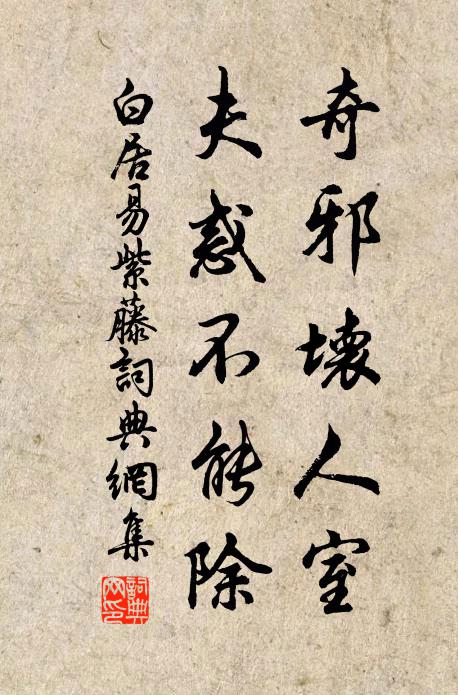 奇邪壞人室
夫惑不能除
白居易紫藤詞典網集
詞典網印